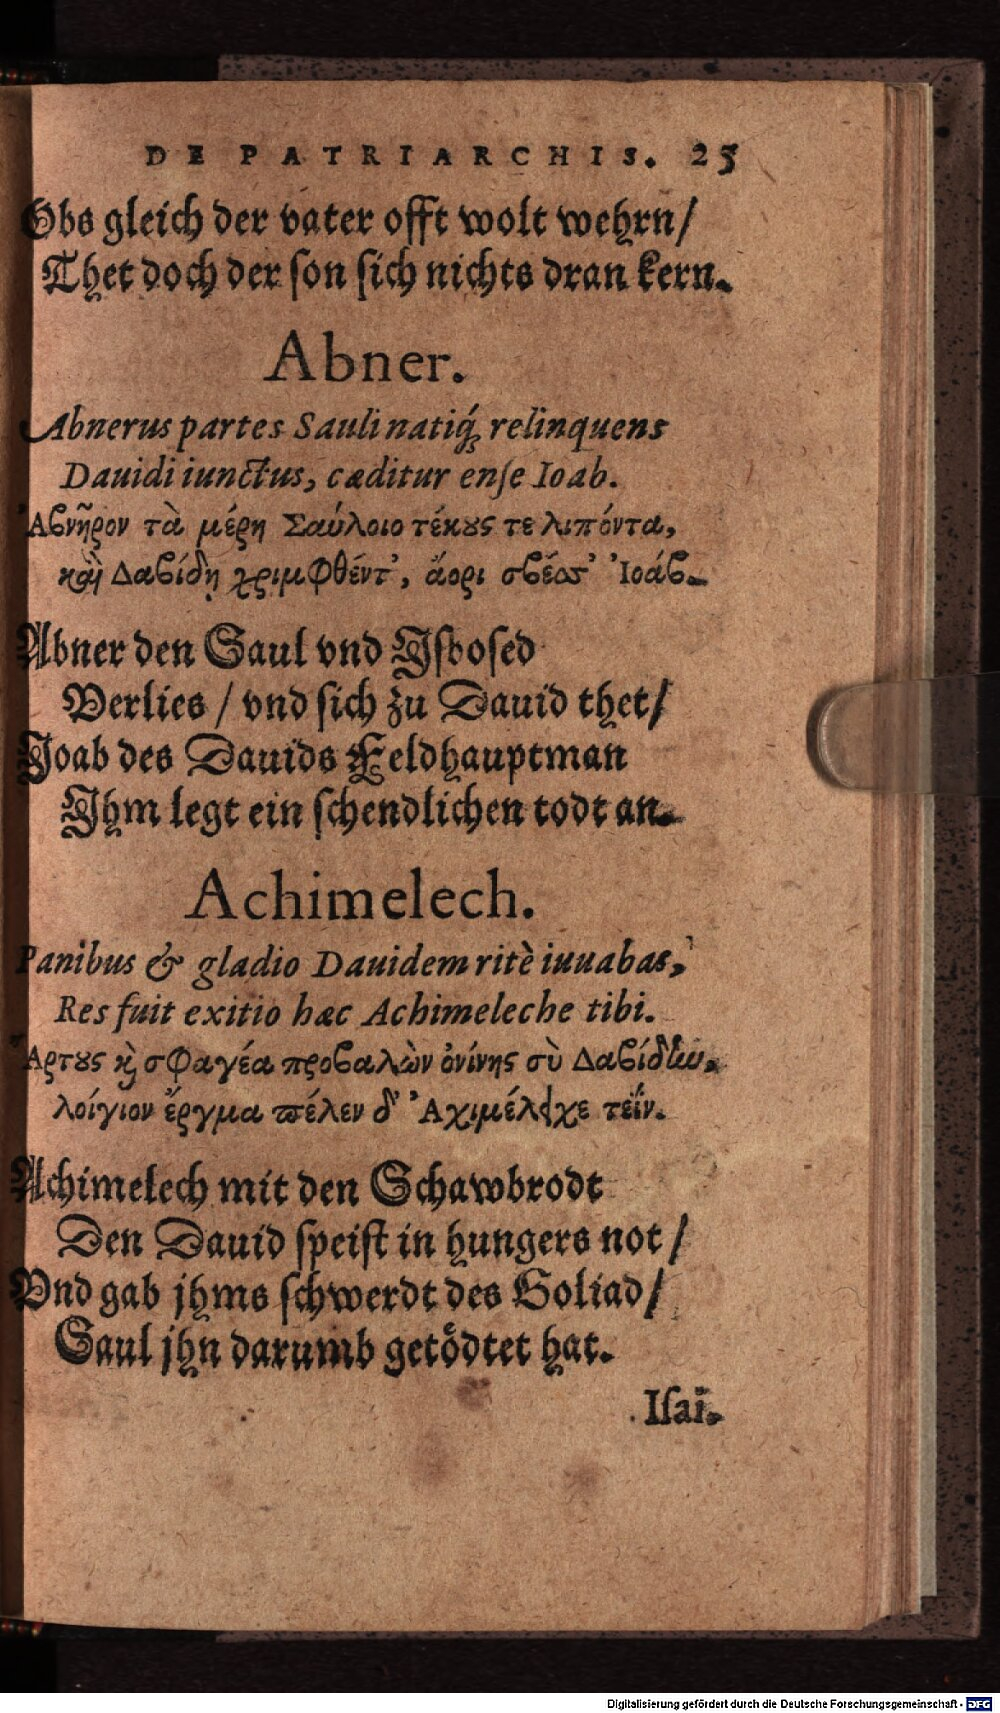 DE PATRIARCHIS. 25
Obs gleich der vater offt wolt wehrn/
Thet doch der son sich nichts dran kern.
Abner.
Abnerus partes Sauli natiq́; relinquens
Dauidi iunctus, cæditur ense Ioab.
Ἀβνῆρον τὰ μέρη Σαύλοιο τέκους τε λιπόντα,
καὶ Δαβίδη χριμφθέντ’, ἄορι σβέσ’ Ἰοάβ.
Abner den Saul vnd Isbosed
Verlies / vnd sich zu Dauid thet/
Joab des Dauids Feldhauptman
Ihm legt ein schendlichen todt an.
Achimelech.
Panibus & gladio Dauidem ritè iuuabas,
Res fuit exitio hæc Achimeleche tibi.
Ἄρτους καὶ σφαγέα προβαλὼν ὀνίνης σὺ Δαβίδην,
λοίγιον ἔργμα πέλεν δ’ Ἀχιμέλεχε τεΐν.
Achimelech mit den Schawbrodt
Den Dauid speist in hungers not /
Vnd gab jhms schwerdt des Goliad/
Saul jhn darumb getödtet hat.
Isai.
Digitalisierung gefördert durch die Deutsche Forschungsgemeinschaft - DFG